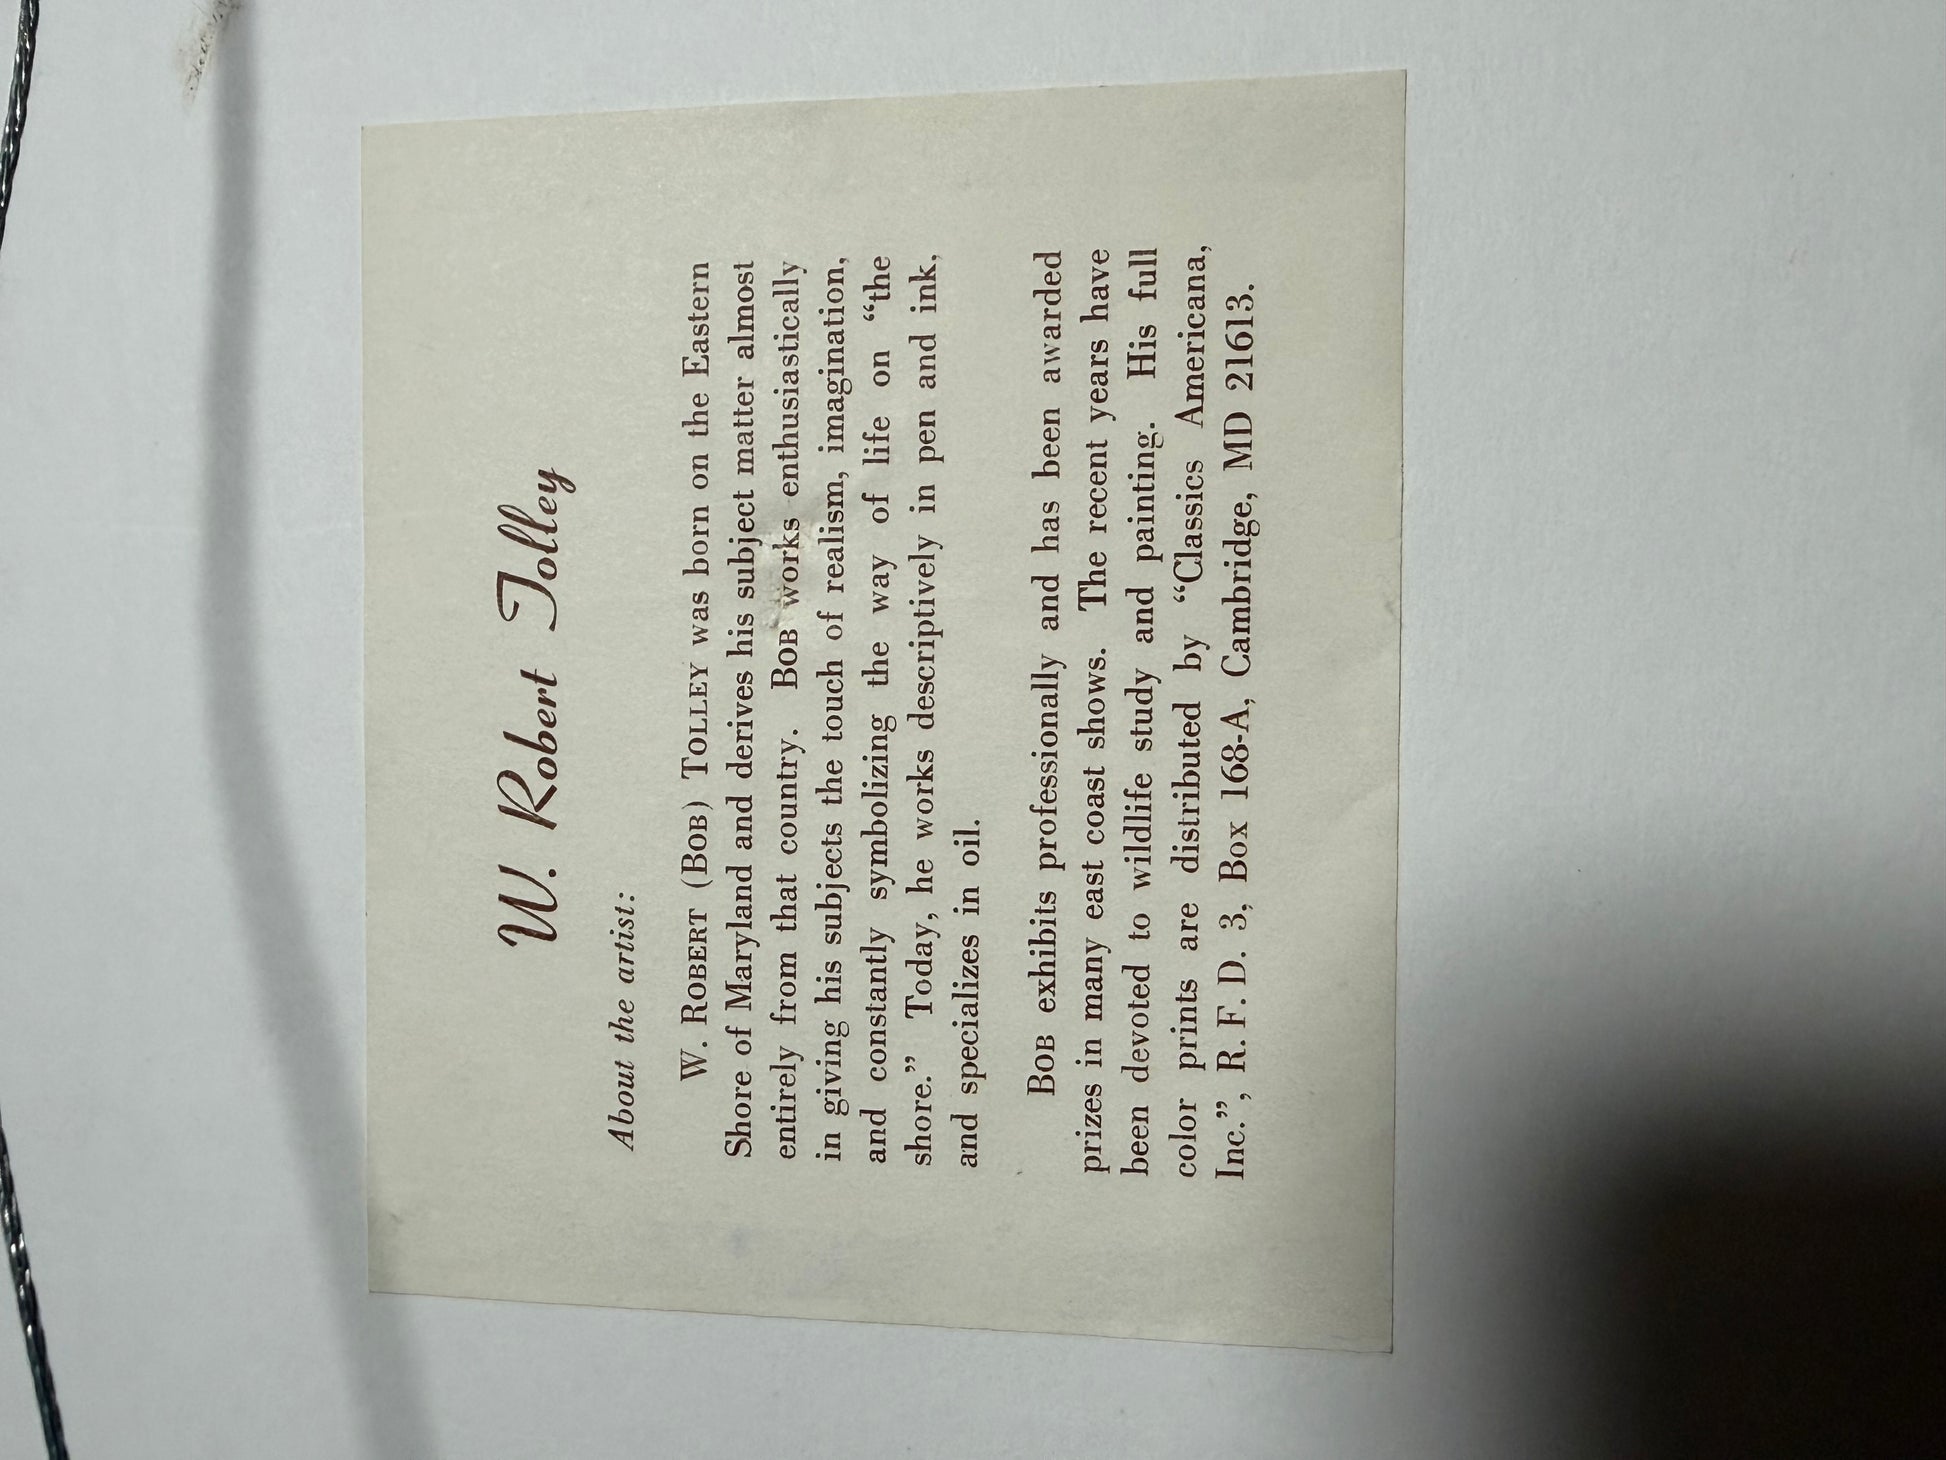 W. Robert Tolley
About the artist:
W. ROBERT (BOB) TOLLEY was born on the Eastern
Shore of Maryland and derives his subject matter almost
entirely from that country. BOB works enthusiastically
in giving his subjects the touch of realism, imagination,
and constantly symbolizing the way of life on “the
shore.” Today, he works descriptively in pen and ink,
and specializes in oil.
BOB exhibits professionally and has been awarded
prizes in many east coast shows. The recent years have
been devoted to wildlife study and painting. His full
color prints are distributed by “Classics Americana,
Inc.”, R. F. D. 3, Box 168-A, Cambridge, MD 21613.